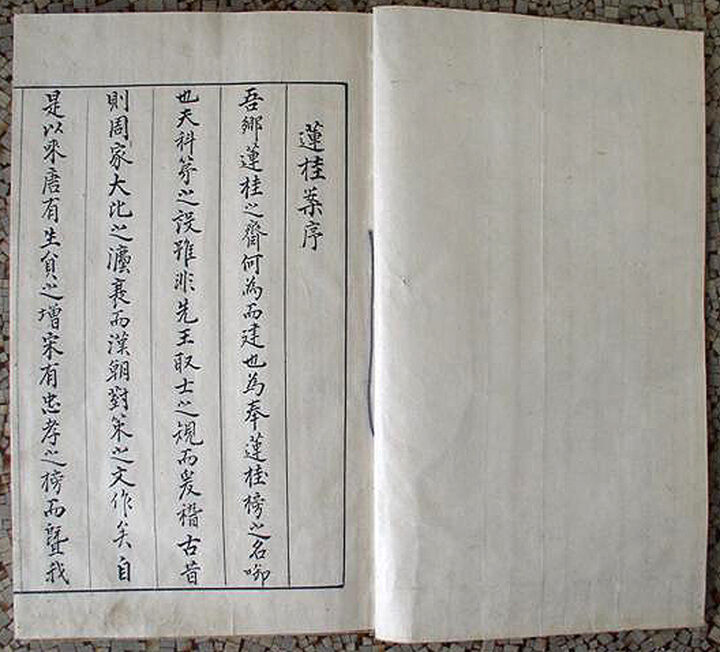 蓮桂案序
吾鄉蓮桂之齋何為而建也為奉蓮桂榜之名啣
也夫科第之設雖非先王取士之規而爰稽古昔
則周家大比之灋衰而漢朝對策之文作矣自
是以來唐有生員之增宋有忠孝之榜而曁我